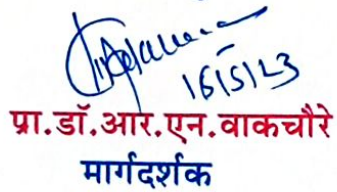 16/5/23
प्रा.डॉ.आर.एन.वाकचौरे
मार्गदर्शक